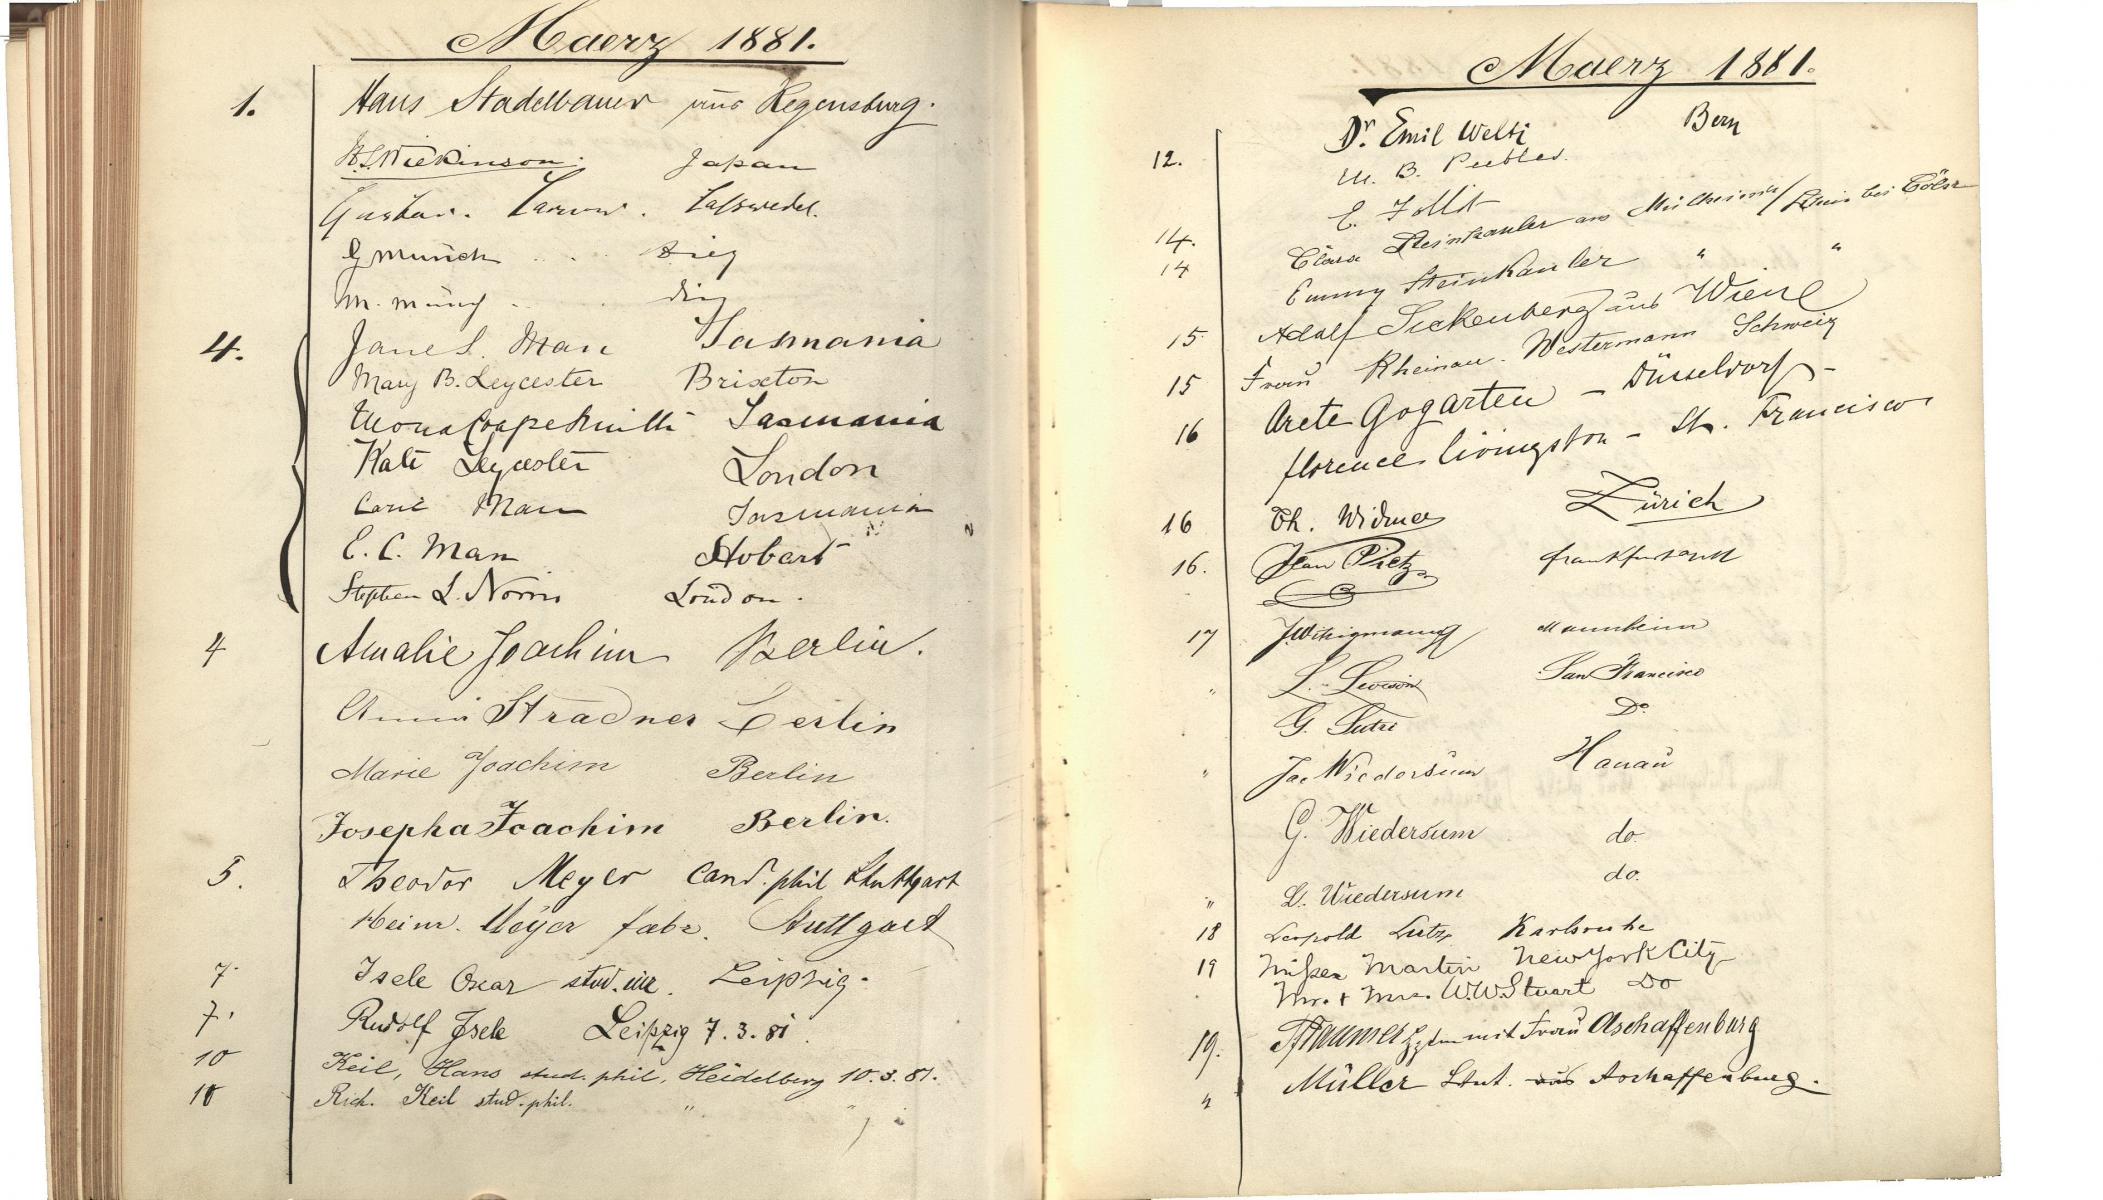 Maerz 1881.
1. Hans Stadelbauer aus Regensburg.
H.S. Wilkinson. Japan
Gustav.
G Münch
M. Münch
4. Jane S. Man Tasmania
Mary B. Leycester Brixton
Mona Tasmania
Kate Leycester London
Man Tasmania
E. C. Man Hobart
Stephen L. Norris London.
4 Amalie Joachim Berlin.
Stradner Berlin
Marie Joachim Berlin
Josepha Joachim Berlin.
5. Theodor Meyer Cand. phil Stuttgart
Heinr. Meyer fabr. Stuttgart
7. Isele Oscar stud. Leipzig.
7. Rudolf Isele Leipzig 7.3.81.
10 Keil, Hans stud. phil, Heidelberg 10.3.81.
10 Rich. Keil stud. phil. " "
Maerz 1881.
Dr. Emil Welti Bern
12. M. B. Peebles.
E.
14. Clara Steinkauler aus Mülheim a/Rhein bei Cöln
14 Emmy Steinkauler " "
15 Adolf Sickenberg aus Wien
15 Frau Rheinau-Westermann Schweiz
16 Arete Gogarten - Düsseldorf -
Florence Livingston - St. Francisco
16 Th. Widmer Zürich
16. Jean Pietz Frankfurt a/M
17 Mannheim
" L. Levison San Francisco
G. Do
" Jac Wiedersum Hanau
G. Wiedersum do.
" L. Wiedersum do.
18 Leopold Lutz Karlsruhe
19 Misses Martin New York City
Mr. & Mrs. W.W. Stuart Do
19. mit Frau Aschaffenburg
" Müller Ltnt. aus Aschaffenburg.